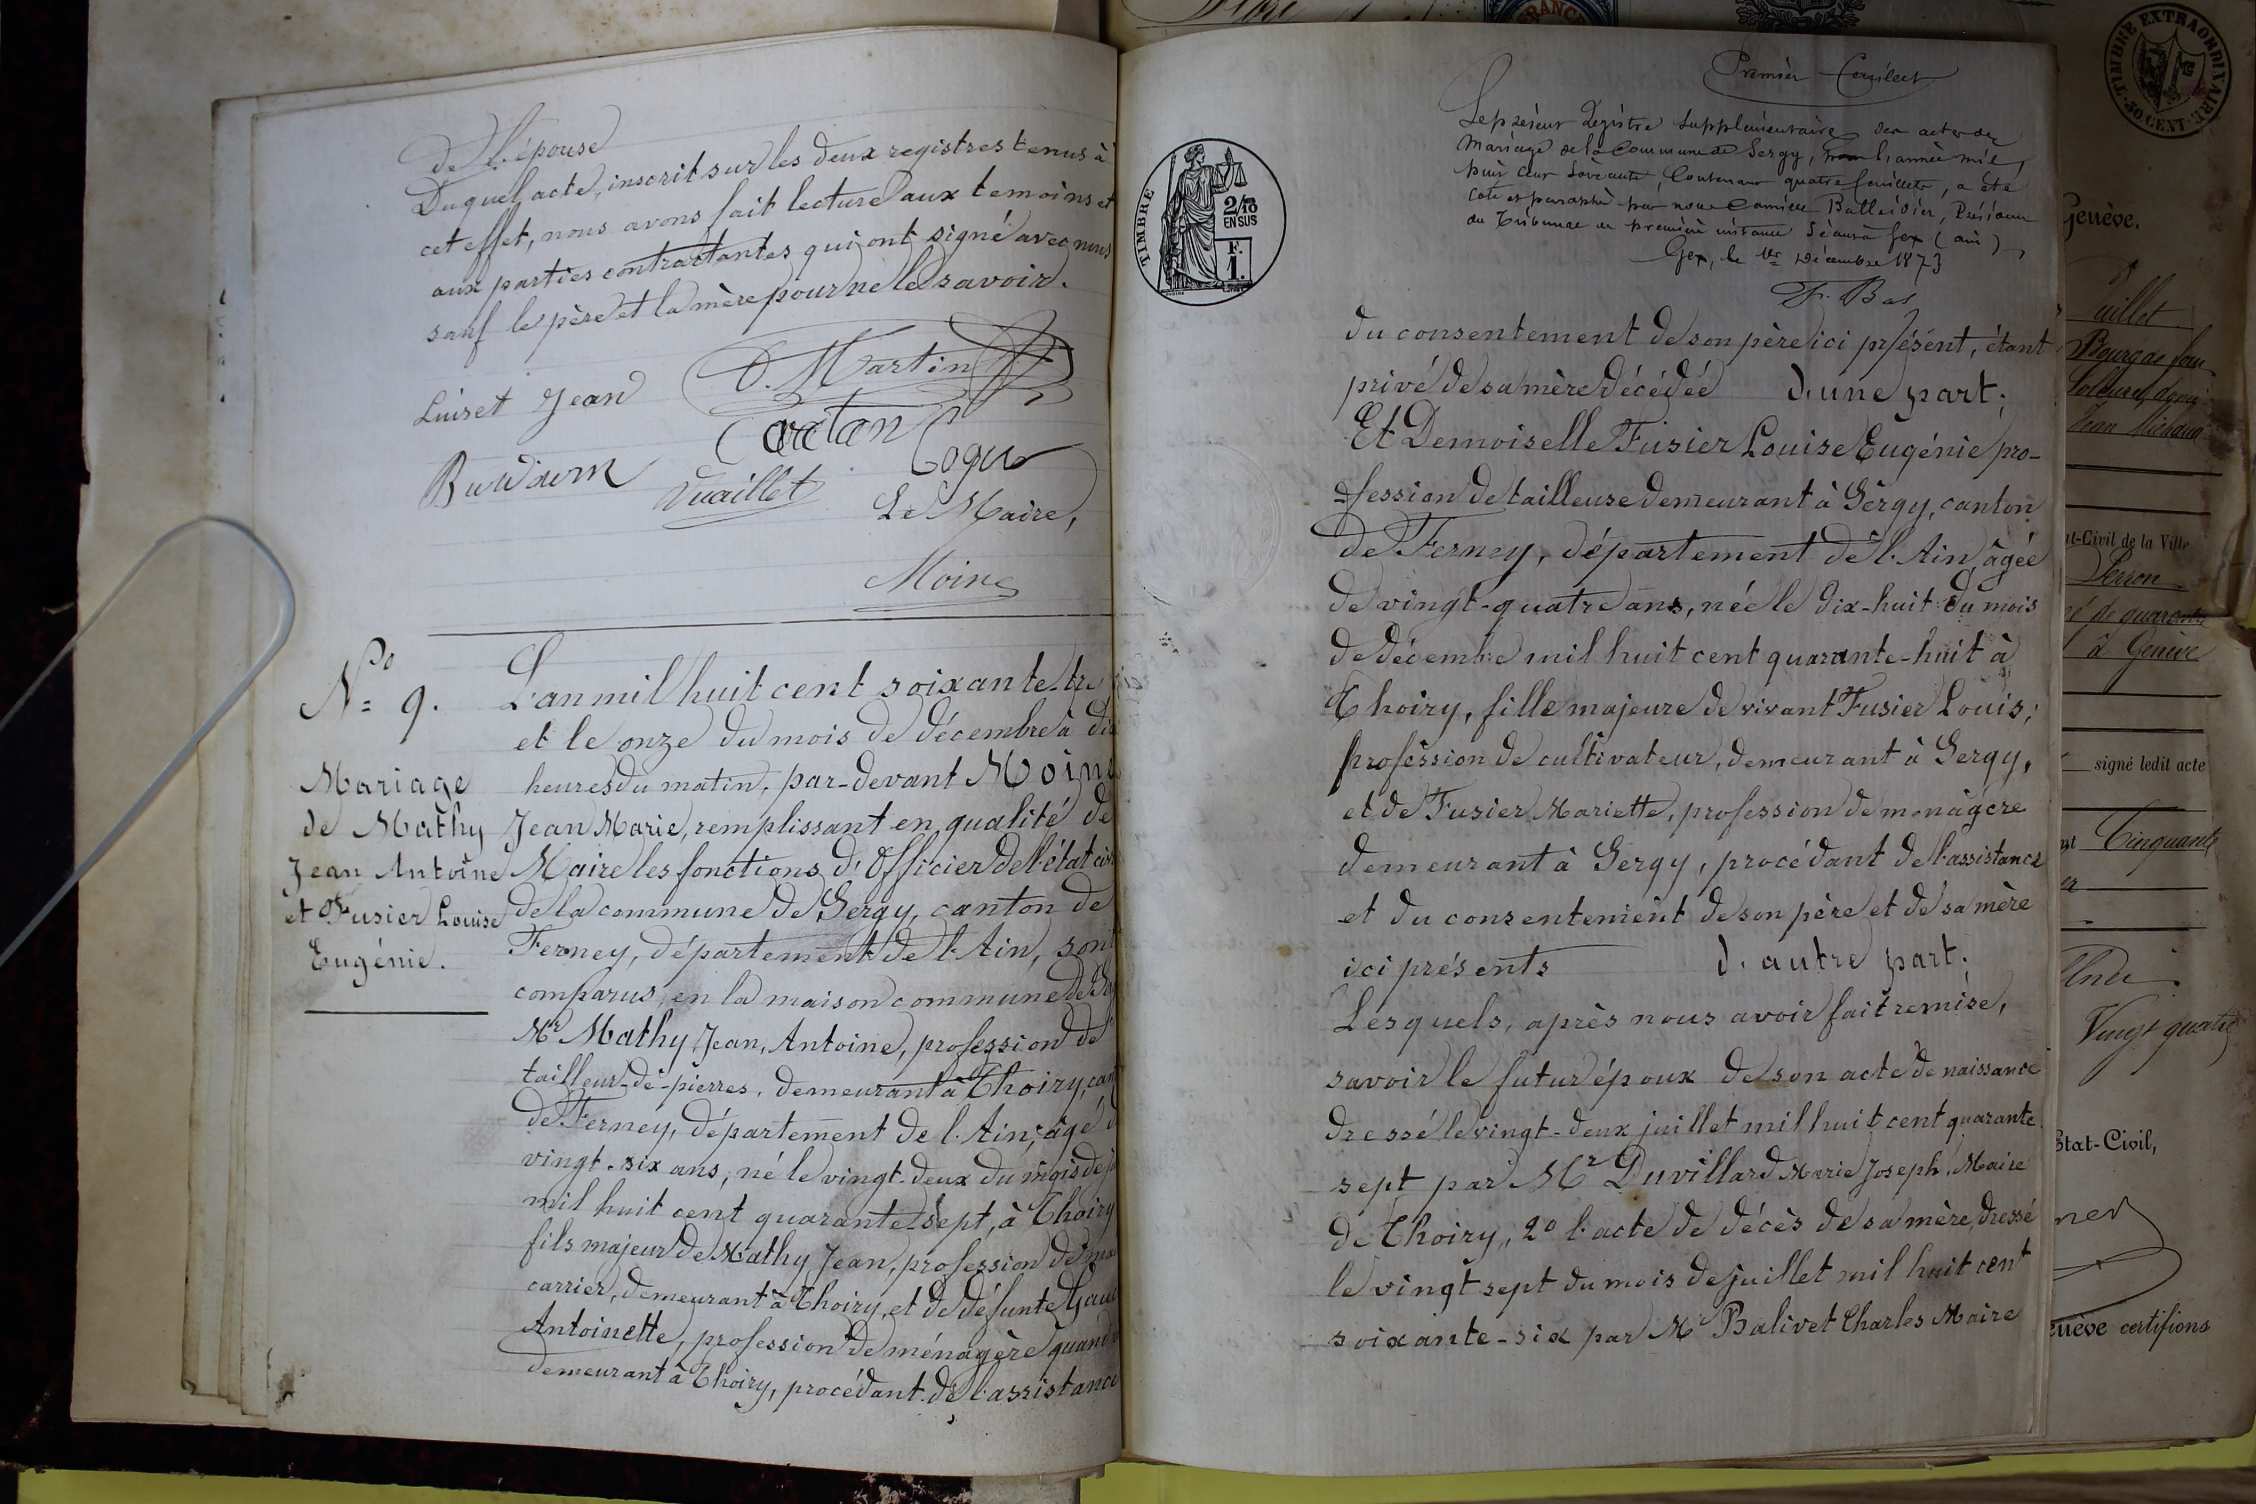 de l'épouse
Duquel acte, inscrit sur les deux registres tenus à
cet effet, nous avons fait lecture aux temoins et
aux parties contractantes qui ont signé avec nous
sauf le père et la mère pour ne le savoir.
Luiset Jean
O. Martin
Cartan
Vuaillet
Le Maire,
Moine
N° 9.
Mariage
de Mathy
Jean Antoine
et Fusier Louise
Eugénie.
L'an mil huit cent soixante-tre
et le onze du mois de décembre à di
heures du matin, par-devant Moine
Jean Marie, remplissant en qualité de
Maire les fonctions d'Officier de l'état civ
de la commune de Sergy, canton de
Ferney, département de l'Ain, sont
comparus, en la maison commune de
Mr Mathy, Jean, Antoine, profession de
tailleur-de-pierres, demeurant à Thoiry, can
de Ferney, département de l'Ain, âgé d
vingt-six ans, né le vingt-deux du mois de ju
mil huit cent quarante sept, à Thoiry
fils majeur de Mathy Jean, profession de
carrier, demeurant à Thoiry, et de défunte
Antoinette, profession de ménagère quand
demeurant à Thoiry, procédant de l'assistance
Premier
Le présent Registre supplémentaire des actes de
Mariage de la Commune de Sergy, l'année mil
huit cent soixante, Contenant quatre feuillets, a été
coté et paraphé par nous Président
du Tribunal de première instance séant à Gex (ain)
Gex, le 1er Décembre 1873
TIMBRE
2/10
EN SUS
F.
1.
du consentement de son père ici présent, étant
privé de sa mère décédée d'une part;
Et Demoiselle Fusier Louise Eugénie pro-
fession de tailleuse demeurant à Sergy, canton
de Ferney, département de l'Ain, âgée
de vingt-quatre ans, née le dix-huit du mois
de décembre mil huit cent quarante-huit à
Thoiry, fille majeure de vivant Fusier Louis;
profession de cultivateur, demeurant à Sergy,
et de Fusier Mariette, profession de ménagère
demeurant à Sergy, procédant de l'assistance
et du consentement de son père et de sa mère
ici présents d'autre part;
Lesquels, après nous avoir fait remise,
savoir le futur époux de son acte de naissance
dressé le vingt-deux juillet mil huit cent quarante
sept par Mr Duvillard Marie Joseph, Maire
de Thoiry, 2° l'acte de décès de sa mère, dressé
le vingt sept du mois de juillet mil huit cent
soixante-six par Mr Balivet Charles Maire
TIMBRE EXTRAORDINAIRE
50 CENT.
Genève.
t-Civil de la Ville
Perron
de quarante
à Genève
signé ledit acte
Cinquante
Vingt quatre
Etat-Civil,
enève certifions